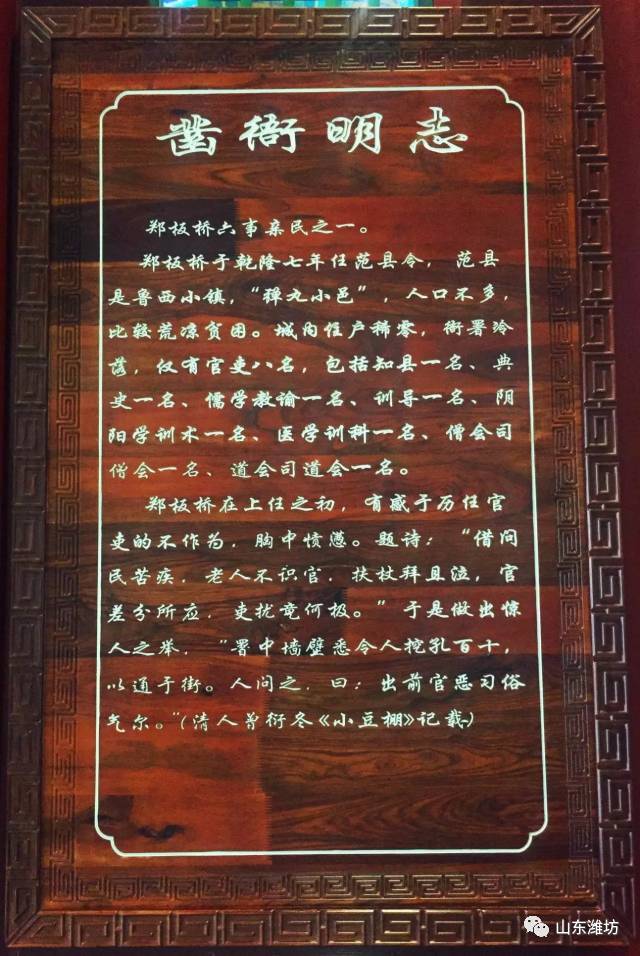 凿衙明志
郑板桥六事亲民之一。
郑板桥于乾隆七年任范县令，范县
是鲁西小镇，“弹丸小邑”，人口不多，
比较荒凉贫困。城内住户稀零，衙署冷
落，仅有官吏八名，包括知县一名、典
史一名、儒学教谕一名、训导一名、阴
阳学训术一名、医学训科一名、僧会司
僧会一名、道会司道会一名。
郑板桥在上任之初，有感于历任官
吏的不作为，胸中愤懑。题诗：“借问
民苦疾，老人不识官，扶杖拜且泣，官
差分所应，吏扰竟何极。”于是做出惊
人之举，“署中墙壁悉令人挖孔百十，
以通于街。人问之，曰：出前官恶习俗
气尔。”（清人曾衍冬《小豆棚》记载）
山东潍坊